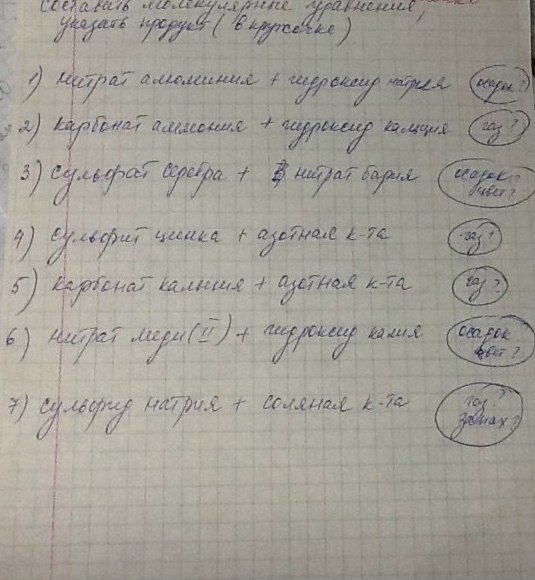 составить молекулярные уравнения,
указать продукт (в кружочке)
1) нитрат алюминия + гидроксид натрия осадок?
2) карбонат аммония + гидроксид кальция газ?
3) сульфат серебра + нитрат бария осадок? цвет?
4) сульфит цинка + азотная к-та газ?
5) карбонат кальция + азотная к-та газ?
6) нитрат меди (II) + гидроксид калия осадок цвет?
7) сульфид натрия + соляная к-та газ? запах?